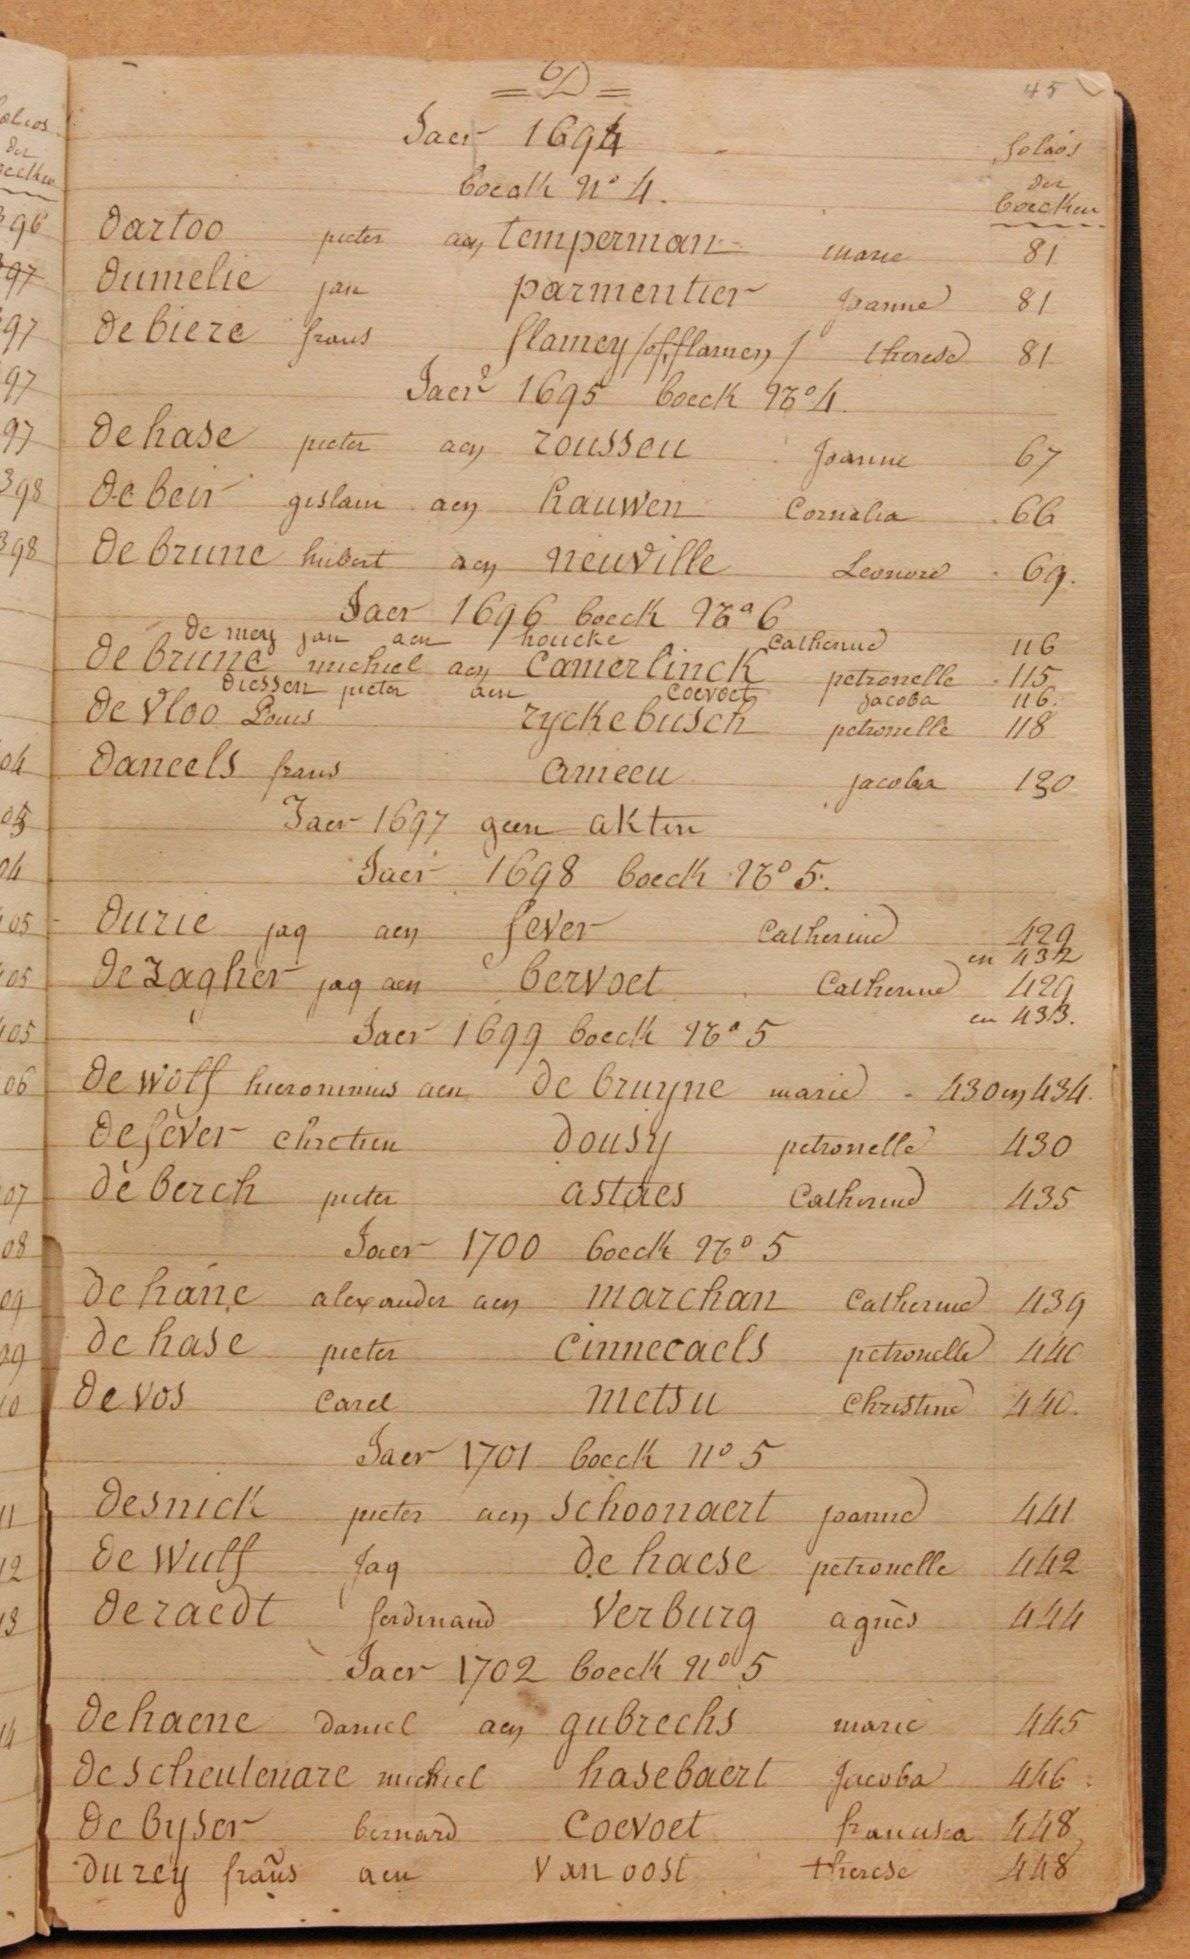 = D =
45
Jaer 1694
boeck N° 4.
folios
der
boecken
dartoo pieter aen temperman marie 81
dumelie jan parmentier Joanne 81
de biere frans flamey /of flamen/ therese 81
Jaer 1695 boeck N° 4.
de hase pieter aen rousseu Joanne 67
de beir gislain aen hauwen Cornelia 66
de brune hubert aen neuville Leonore 69.
Jaer 1696 boeck N° 6
de mey jan aen houcke Catherine 116
de brune michiel aen Camerlinck petronelle 115
diessen pieter aen Coevoet Jacoba 116.
de vloo Louis ryckebusch petronelle 118
daneels frans ameeu jacoba 130
Jaer 1697 geen akten
Jaer 1698 boeck N° 5.
durie jaq aen fever Catherine 429
en 432
de zagher jaq aen bervoet Catherine 429
en 433.
Jaer 1699 boeck N° 5
de wolf hieronimus aen de bruyne marie 430 en 434.
de fever Chretien dousy petronelle 430
de berch pieter astaes Catherine 435
Jaer 1700 boeck N° 5
de hane alexander aen marchan Catherine 439
de hase pieter cinnecaels petronelle 440
de vos Carel metsu Christine 440.
Jaer 1701 boeck N° 5
desnick pieter aen schoonaert joanne 441
de wulf Jaq de haese petronelle 442
de raedt ferdinand verburg agnès 444
Jaer 1702 boeck N° 5
de haene daniel aen gubrechs marie 445
de scheutenare michiel hasebaert Jacoba 446
de byser bernard Coevoet francisca 448
durey frans aen van oost therese 448